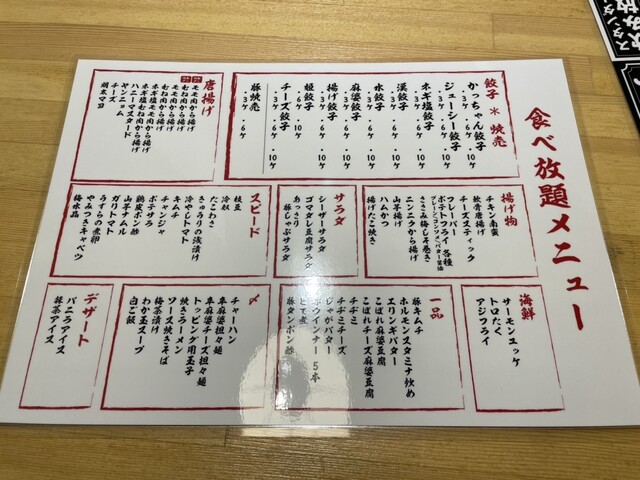 食べ放題メニュー
餃子 * 焼売
かっちゃん餃子
・3ケ ・6ケ ・10ケ
ジューシー餃子
・3ケ ・6ケ ・10ケ
ネギ塩餃子
・3ケ ・6ケ ・10ケ
渓餃子
・3ケ ・6ケ ・10ケ
水餃子
・3ケ ・6ケ ・10ケ
麻婆餃子
・3ケ ・6ケ ・10ケ
揚げ餃子
・3ケ ・6ケ ・10ケ
姫餃子
・6ケ ・10ケ
チーズ餃子
・3ケ ・6ケ ・10ケ
豚焼売
・3ケ ・6ケ
唐揚げ
モモ肉から揚げ
むね肉から揚げ
ネギ塩モモ肉から揚げ
ネギ塩むね肉から揚げ
ハニーマスタード
ヤンニョム
チーズ
明太マヨ
揚げ物
チキン南蛮
軟骨唐揚げ
チーズスティック
フレーバー
ポテトフライ 各種
プレーン/コンソメ/バター醤油
ささみ梅しそ巻き
ニンニクから揚げ
山芋揚げ
ハムかつ
揚げたこ焼き
サラダ
シーザーサラダ
ゴマダレ豆腐サラダ
あっさり
豚しゃぶサラダ
スピード
枝豆
冷奴
たこわさ
きゅうりの浅漬け
冷やしトマト
キムチ
チャンジャ
ポテサラ
鶏皮ポン酢
山芋ナムル
ガリトマト
うずらの煮卵
やみつきキャベツ
梅水晶
海鮮
サーモンユッケ
トロたく
アジフライ
一品
豚キムチ
ホルモンスタミナ炒め
エリンギバター
こぼれ麻婆豆腐
こぼれチーズ麻婆豆腐
チヂミ
チヂミチーズ
じゃがバター
ウインナー 5本
とて煮
豚タンポン酢
〆
チャーハン
卑麻婆担々麺
卑麻婆チーズ担々麺
トッピング用玉子
焼きラーメン
ソース焼きそば
梅茶漬け
わか玉スープ
白ご飯
デザート
バニラアイス
抹茶アイス